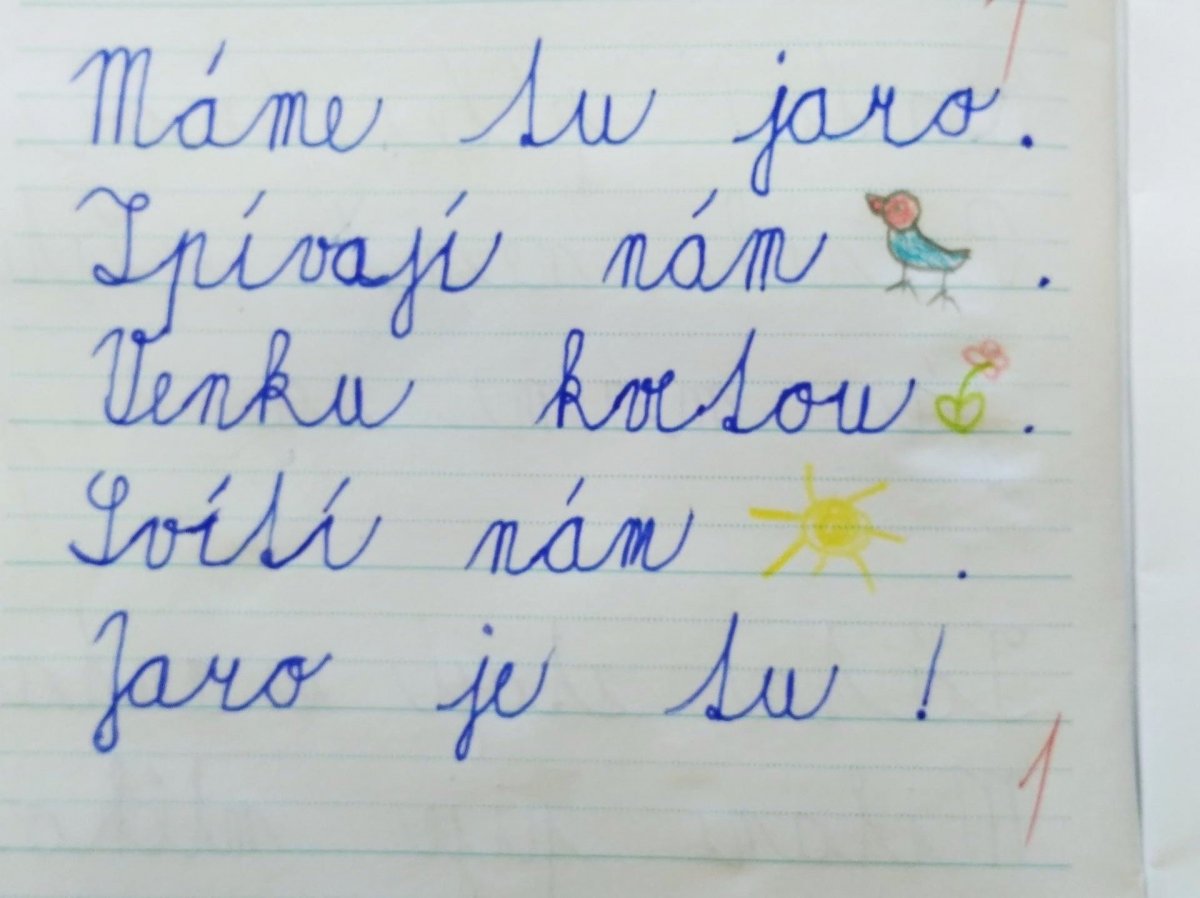 Máme tu jaro.
Zpívají nám .
Venku kvetou .
Svítí nám .
Jaro je tu!
1